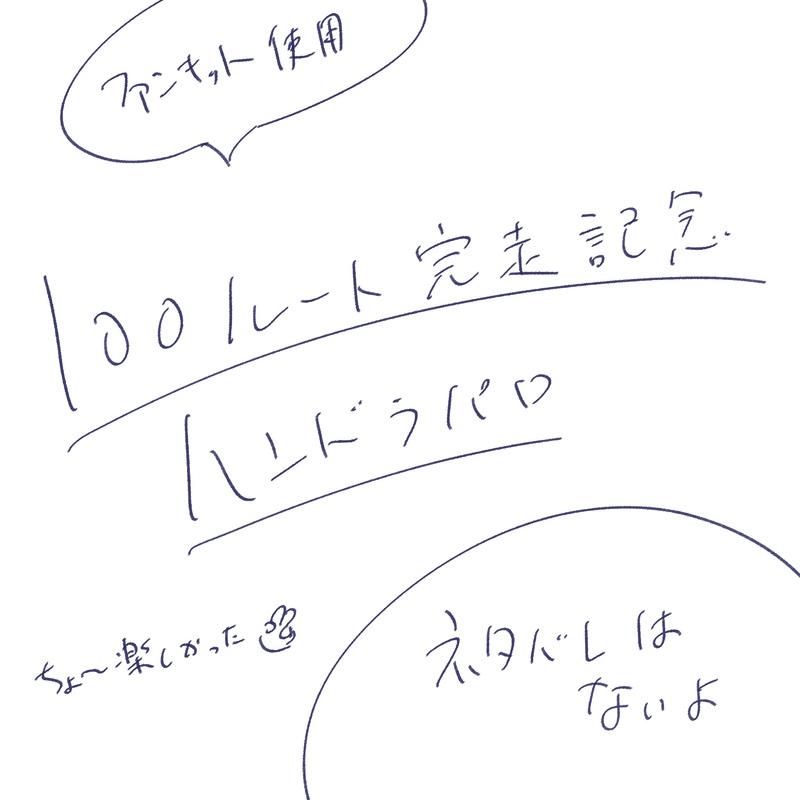 ファンキット使用
100ルート完走記念
ハンドラパロ
ちょ〜楽しかった
ネタバレは
ないよ